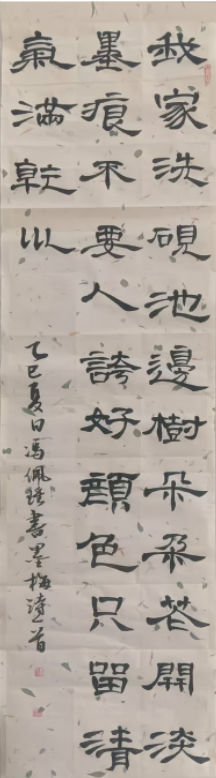 我家洗硯池邊樹朵朵花開淡
墨痕不要人誇好顏色只留清
氣滿乾巛
乙巳夏日馮佩書墨梅詩一首